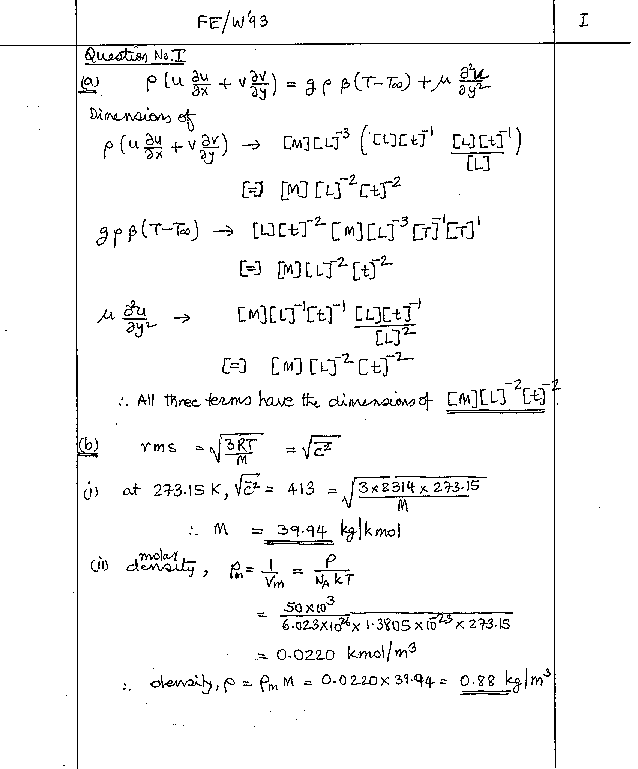 FE/W'93
I
Question No. I
(a) ρ(u ∂u/∂x + v ∂v/∂y) = gρβ(T-T∞) + μ ∂²u/∂y²
Dimensions of
ρ(u ∂u/∂x + v ∂v/∂y) → [M][L]⁻³ ([L][t]⁻¹ [L][t]⁻¹/[L])
[=] [M][L]⁻²[t]⁻²
gρβ(T-T∞) → [L][t]⁻² [M][L]⁻³ [T]⁻¹[T]¹
[=] [M][L]⁻²[t]⁻²
μ ∂²u/∂y² → [M][L]⁻¹[t]⁻¹ [L][t]⁻¹/[L]²
[=] [M][L]⁻²[t]⁻²
∴ All three terms have the dimensions of [M][L]⁻²[t]⁻²
(b) rms = √(3RT/M) = √c²
(i) at 273.15 K, √c² = 413 = √(3×8314×273.15/M)
∴ M = 39.94 kg/kmol
(ii) molar density, ρm = 1/Vm = P/(NA kT)
= 50×10³/(6.023×10²⁶ × 1.3805×10⁻²³ × 273.15)
= 0.0220 kmol/m³
∴ density, ρ = ρm M = 0.0220×39.94 = 0.88 kg/m³